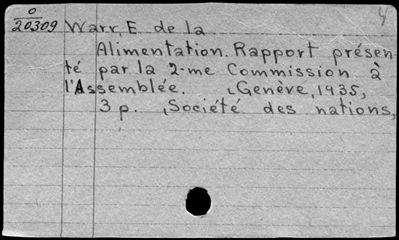 O
20309 Warr, E. de la
Alimentation. Rapport présen-
té par la 2-me Commission à
l'Assemblée. Genève, 1935,
3 p. Société des nations,